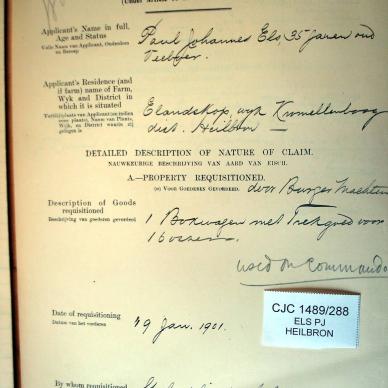 (Under Article
Applicant's Name in full,
Age and Status
Volle Naam van Applicant, Ouderdom
en Beroep
Paul Johannes Els 35 jaren oud
Veeboer.
Applicant's Residence (and
if farm) name of Farm,
Wyk and District in
which it is situated
Elandskop, wyk Krommellenboog
dist. Heilbron —
DETAILED DESCRIPTION OF NATURE OF CLAIM.
NAUWKEURIGE BESCHRIJVING VAN AARD VAN EISCH.
A.—PROPERTY REQUISITIONED.
(a) VOOR GOEDEREN GEVORDERD. door Burger Machten
Description of Goods
requisitioned
Beschrijving van goederen gevorderd
1 Bokwagen met Trekgoed voor
16 ossen.
used on Commando
Date of requisitioning
Datum van het vorderen
19 Jan. 1901.
CJC 1489/288
ELS PJ
HEILBRON
By whom requisitioned